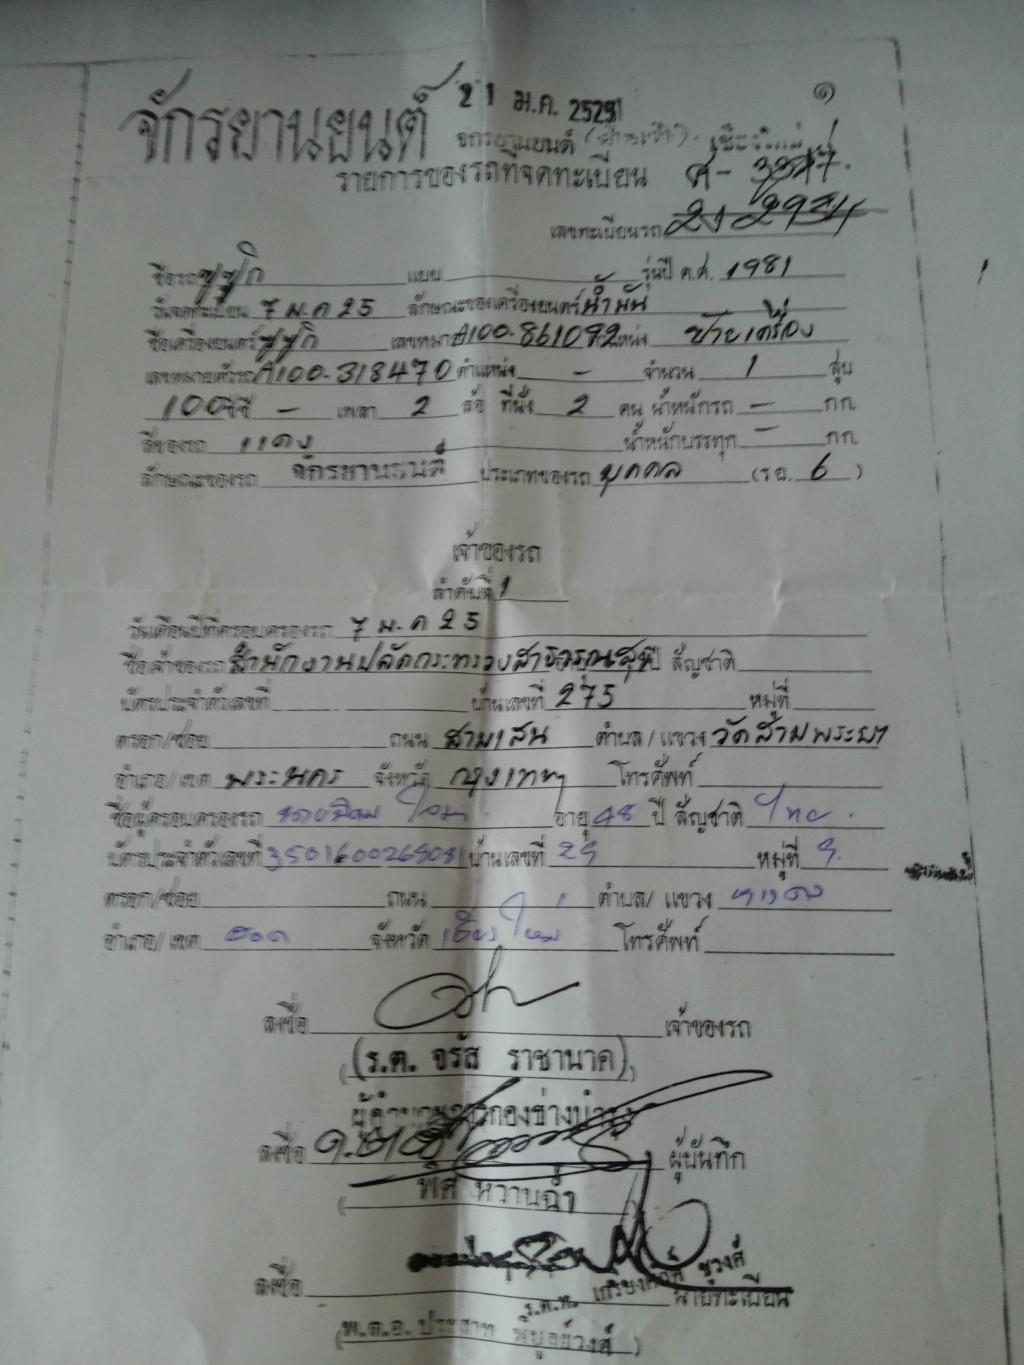 ๑
จักรยานยนต์ 21 ม.ค. 2529
จักรยานยนต์
รายการของรถที่จดทะเบียน
เลขทะเบียนรถ
ชื่อรถ ซูซูกิ แบบ รุ่นปี ค.ศ. 1981
วันจดทะเบียน 7 ม.ค 25 ลักษณะของเครื่องยนต์ น้ำมัน
ชื่อเครื่องยนต์ ซูซูกิ เลขหมาย A100-861092 ซ้ายเครื่อง
เลขหมายตัวรถ A100-318470 ตำแหน่ง - จำนวน 1 สูบ
100 ซีซี - เพลา 2 ล้อ ที่นั่ง 2 คน น้ำหนักรถ - กก.
สีของรถ แดง น้ำหนักบรรทุก - กก.
ลักษณะของรถ จักรยานยนต์ ประเภทของรถ บุคคล (รย. 6)
เจ้าของรถ
ลำดับที่ 1
วันเดือนปีที่ครอบครองรถ 7 ม.ค 25
ชื่อเจ้าของรถ สำนักงานปลัดกระทรวงสาธารณสุข ปี สัญชาติ
บัตรประจำตัวเลขที่ บ้านเลขที่ 275 หมู่ที่
ตรอก/ซอย ถนน สามเสน ตำบล/แขวง วัดสามพระยา
อำเภอ/เขต พระนคร จังหวัด กรุงเทพฯ โทรศัพท์
ชื่อผู้ครอบครองรถ อายุ 48 ปี สัญชาติ ไทย
บัตรประจำตัวเลขที่ บ้านเลขที่ 29 หมู่ที่ 9
ตรอก/ซอย ถนน ตำบล/แขวง
อำเภอ/เขต ฮอด จังหวัด เชียงใหม่ โทรศัพท์
ลงชื่อ เจ้าของรถ
(ร.ต. จรัส ราชานาค)
ผู้อำนวยการกองช่างบำรุง
ลงชื่อ ผู้บันทึก
ลงชื่อ นายทะเบียน
ร.ต.ท. เกรียงศักดิ์ ชูวงศ์